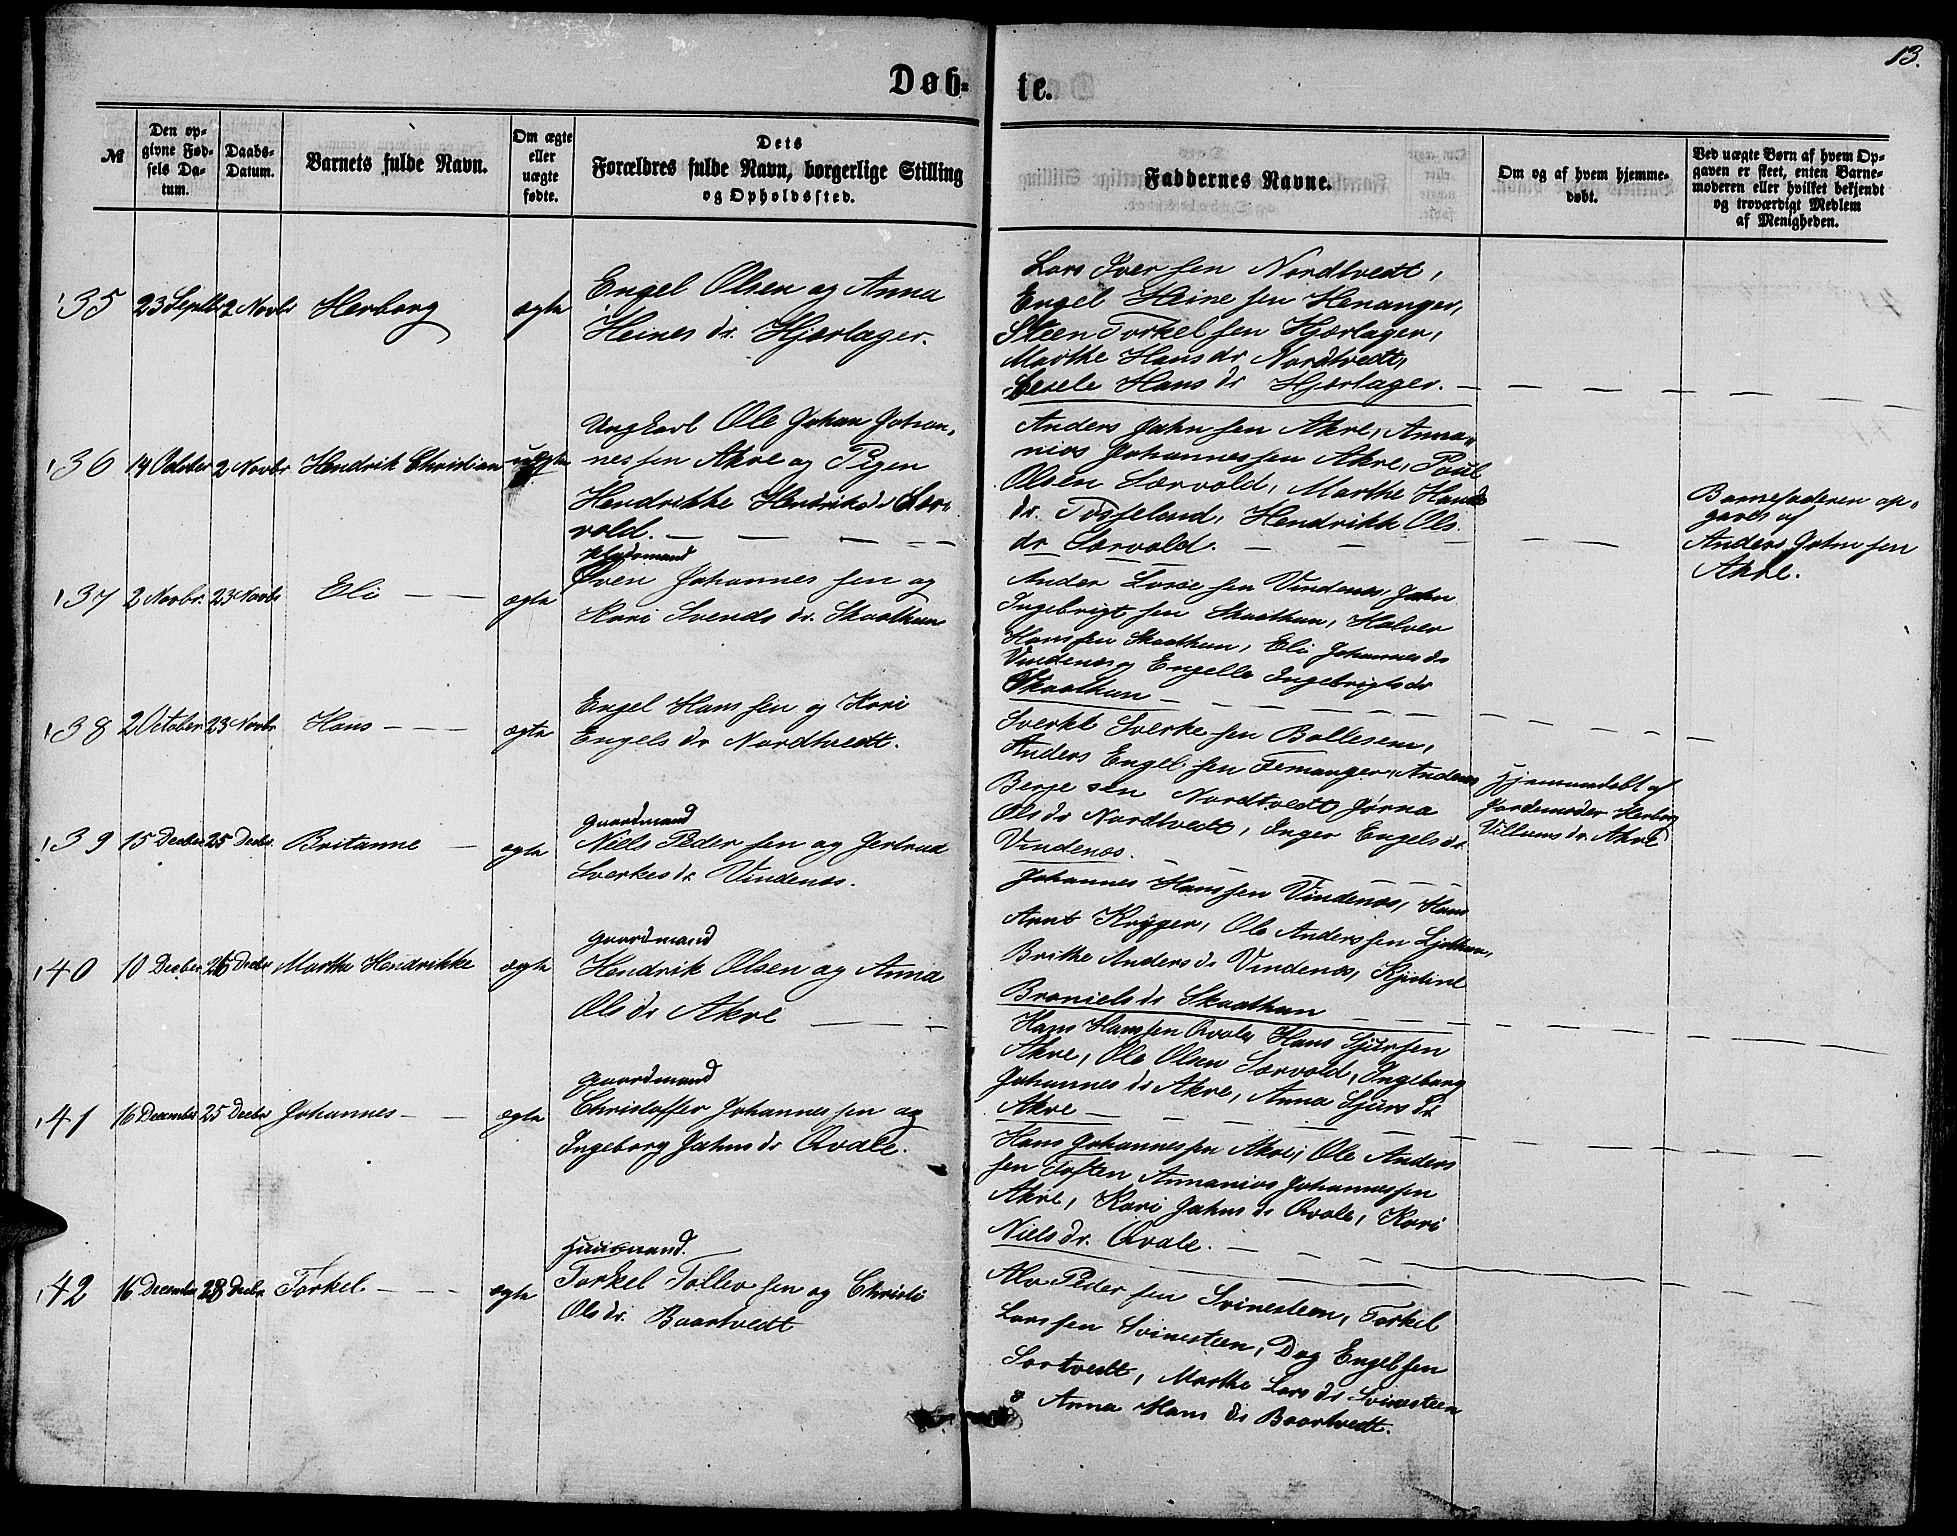 13.
Døb-
te.
№
Den op-
givne Fød-
sels Da-
tum.
Daabs-
Datum.
Barnets fulde Navn.
Om ægte
eller
uægte
fødte.
Dets
Forældres fulde Navn, borgerlige Stilling
og Opholdssted.
Faddernes Navne.
Om og af hvem hjemme-
døbt.
Ved uægte Børn af hvem Op-
gaven er skeet, enten Barne-
moderen eller hvilket bekjendt
og troværdigt Medlem
af Menigheden.
35 23 Septbr 2 Novbr Herborg ægte
Engel Olsen og Anna
Heines dr. Hjorlager.
Lars Iversen Nordtvedt,
Engel Heinesen Henanger,
Steen Torkelsen Hjorlager,
Marthe Hansdr Nordtvedt,
Cecele Hansdr Hjorlager.
36 14 October 2 Novbr Hendrik Christian uægte
Ungkarl Ole Johan Johan-
nessen Akre og Pigen
Hendrikke Hendriksdr Sær-
vold.
Anders Jahnsen Akre, Anna-
nias Johannessen Akre, Poul
Olsen Særvold, Marthe Hans
dr. Tosseland, Hendrikk Ols
dr. Særvold.
Barnefaderen op-
gaves af
Anders Johnsen
Akre.
37 2 Novbr. 23 Novbr Eli ægte
Pladsmand
Sven Johannessen og
Kari Svends dr. Skaathun
Ander Larsen Vindenæs, Jahn
Ingebrigtsen Skaathun, Halver
Hanssen Skaathun, Eli Johannesdr
Vindenæs og Engelle Ingebrigtsdr
Skaathun
38 2 October 23 Novbr Hans ægte
Engel Hanssen og Kari
Engelsdr Nordtvedt.
Sverke Sverkesen Ballesem,
Anders Engelsen Femanger, Anders
Berjesen Nordtvedt Jørna
Olsdr Nordtvedt, Inger Engelsdr
Vindenæs.
Hjemmedøbt af
Jordemoder Herborg
Villumsdr. Akre
39 15 Decber 25 Decbr. Britanne ægte
Gaardmand
Niels Pedersen og Jertrud
Sverkesdr Vindenæs.
Johannes Hanssen Vindenæs, Hans
Arnt Krÿger, Ole Anderssen
Brithe Andersdr Vindenæs, Kjistine
Danielsdr Skaathun
40 10 Decber 26 Decbr Marthe Hendrikke ægte
Gaardmand
Hendrik Olsen og Anna
Olsdr Akre
Hans Hanssen Qvale, Hans Sjursen
Akre, Ole Olsen Særvold, Ingeborg
Johannesdr Akre, Anna Sjursdr
Akre
41 16 December 25 Decbr Johannes ægte
Gaardmand
Christoffer Johannessen og
Ingeborg Jahnsdr Qvale.
Hans Johannessen Akre, Ole Anders
sen Toften Annanias Johannessen
Akre, Kari Jahnsdr Qvale, Kari
Nielsdr. Qvale.
42 16 December 28 Decbr Torkel. ægte
Huusmand.
Torkel Tollevsen og Christi
Olsdr. Baartvedt
Alv Pedersen Svinesteen, Torkel
Larssen Svinesteen, Dag Engelsen
Sortvedt, Marthe Larsdr Svinesteen
& Anna Hansdr Baartvedt.